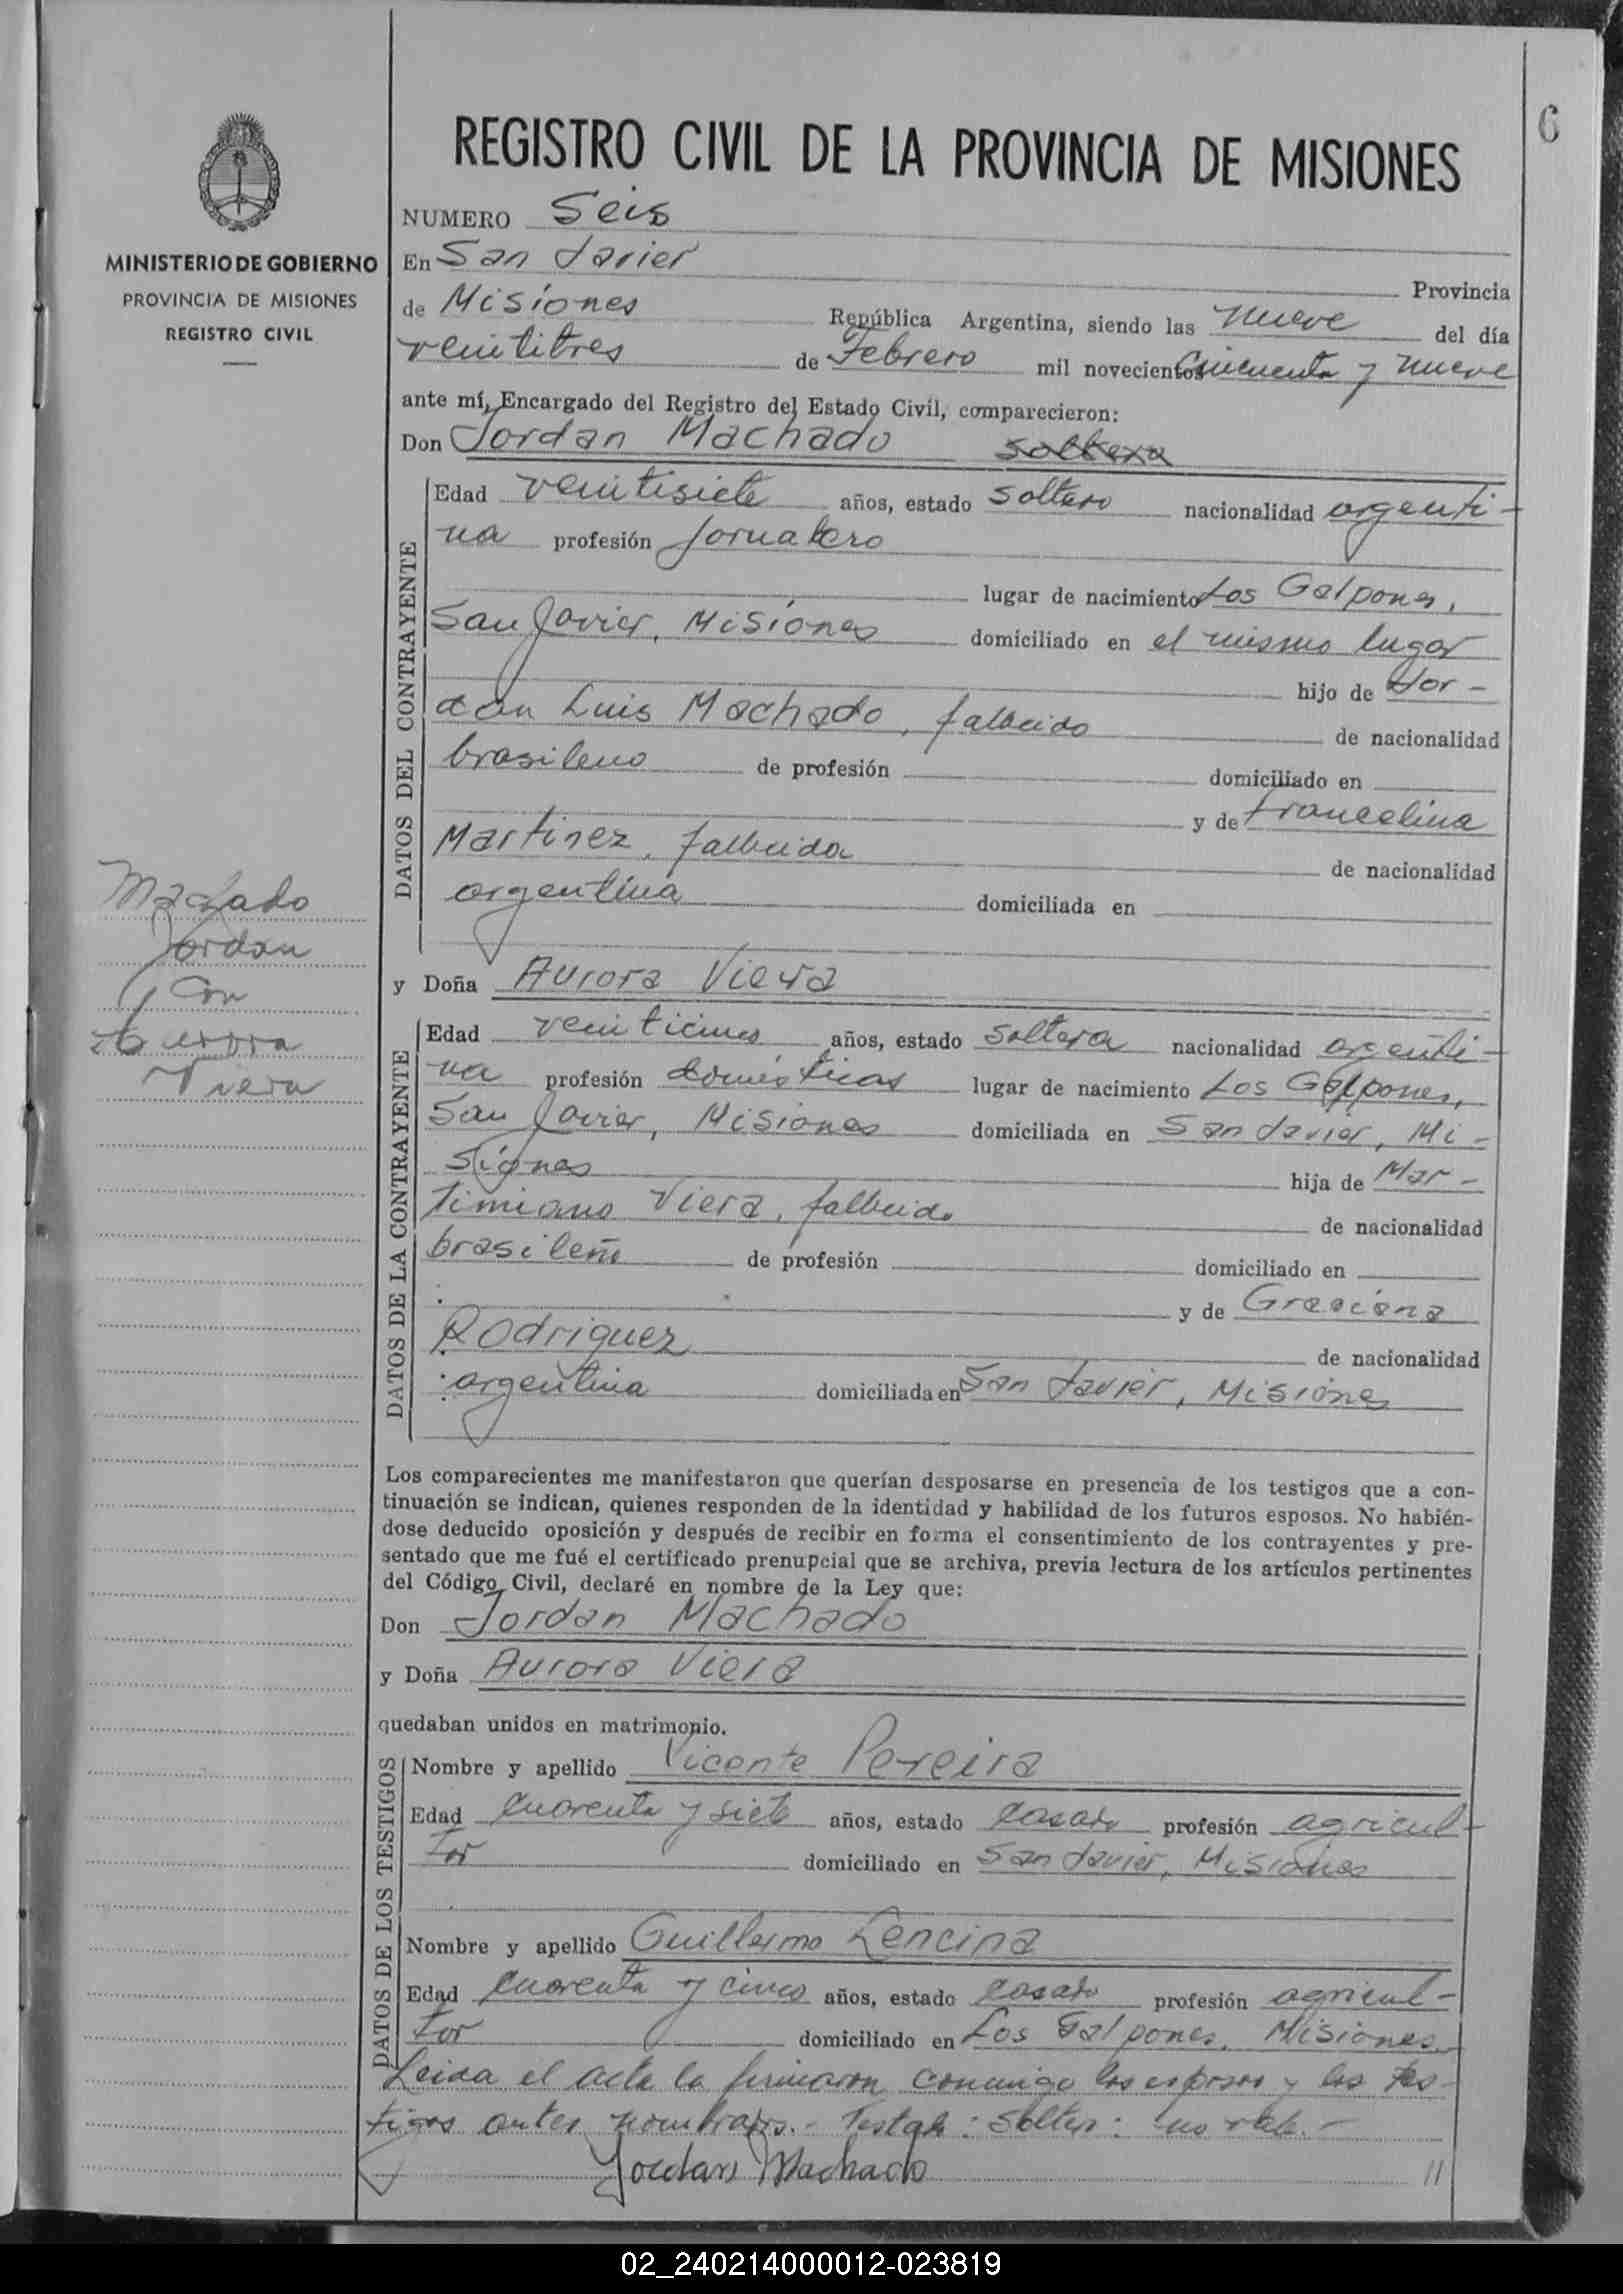 6
REGISTRO CIVIL DE LA PROVINCIA DE MISIONES
MINISTERIO DE GOBIERNO
PROVINCIA DE MISIONES
REGISTRO CIVIL
NUMERO Seis
En San Javier Provincia
de Misiones República Argentina, siendo las nueve del día
veintitres de Febrero mil novecientos cincuenta y nueve
ante mí, Encargado del Registro del Estado Civil, comparecieron:
Don Jordan Machado soltero
DATOS DEL CONTRAYENTE
Edad veintisiete años, estado soltero nacionalidad argenti-
na profesión Jornalero
lugar de nacimiento Los Galpones,
San Javier, Misiones domiciliado en el mismo lugar
hijo de Jor-
dan Luis Machado, fallecido de nacionalidad
brasileno de profesión domiciliado en
y de Francelina
Martinez, fallecida de nacionalidad
argentina domiciliada en
y Doña Aurora Viera
DATOS DE LA CONTRAYENTE
Edad veinticinco años, estado soltera nacionalidad argenti-
na profesión domésticas lugar de nacimiento Los Galpones,
San Javier, Misiones domiciliada en San Javier, Mi-
siones hija de Mar-
timiano Viera, fallecido de nacionalidad
brasileño de profesión domiciliado en
y de Graciana
Rodriguez de nacionalidad
argentina domiciliada en San Javier, Misiones
Machado
Jordan
Con
Aurora
Viera
Los comparecientes me manifestaron que querían desposarse en presencia de los testigos que a con-
tinuación se indican, quienes responden de la identidad y habilidad de los futuros esposos. No habién-
dose deducido oposición y después de recibir en forma el consentimiento de los contrayentes y pre-
sentado que me fué el certificado prenupcial que se archiva, previa lectura de los artículos pertinentes
del Código Civil, declaré en nombre de la Ley que:
Don Jordan Machado
y Doña Aurora Viera
quedaban unidos en matrimonio.
DATOS DE LOS TESTIGOS
Nombre y apellido Vicente Pereira
Edad cuarenta y siete años, estado casado profesión agricul-
tor domiciliado en San Javier, Misiones
Nombre y apellido Guillermo Lencina
Edad cuarenta y cinco años, estado casado profesión agricul-
tor domiciliado en Los Galpones, Misiones.
Leida el acta la firmaron conmigo los esposos y los tes-
tigos antes nombrados.- Testado: Soltero: no vale.-
Jordan Machado //
02_240214000012-023819